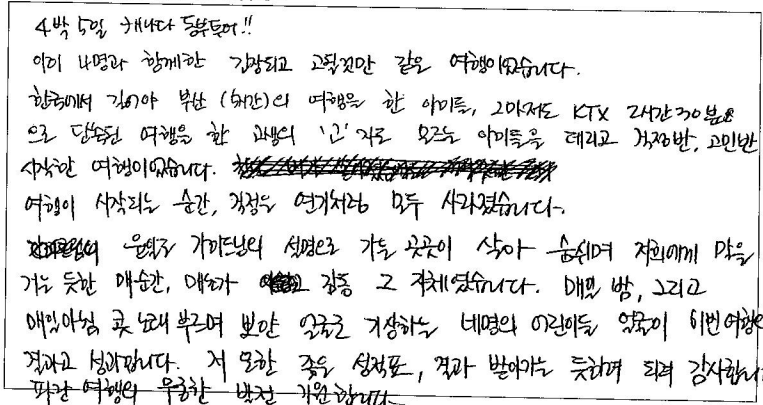 4박 5일 캐나다 동부투어!!
아이 4명과 함께한 긴장되고 고될것만 같은 여행이었습니다.
한국에서 길어야 부산 (5시간)의 여행을 한 아이들, 그마저도 KTX 2시간 30분
으로 단축된 여행을 한 고생의 '고'자도 모르는 아이들을 데리고 걱정반, 고민반
시작한 여행이었습니다.
여행이 시작되는 순간, 걱정은 연기처럼 모두 사라졌습니다.
가이드님의 설명으로 가는 곳곳이 살아 숨쉬며 저희에게 말을
거는 듯한 매순간, 매초가 감동 그 자체였습니다. 매일 밤, 그리고
매일아침 콧노래 부르며 뽀얀 얼굴로 기상하는 네명의 어린이들 얼굴이 이번여행의
결과고 성과입니다. 저 또한 좋은 성적표, 결과 받아가는 듯하여 되려 감사합니다.
파란 여행의 무궁한 발전 기원합니다.